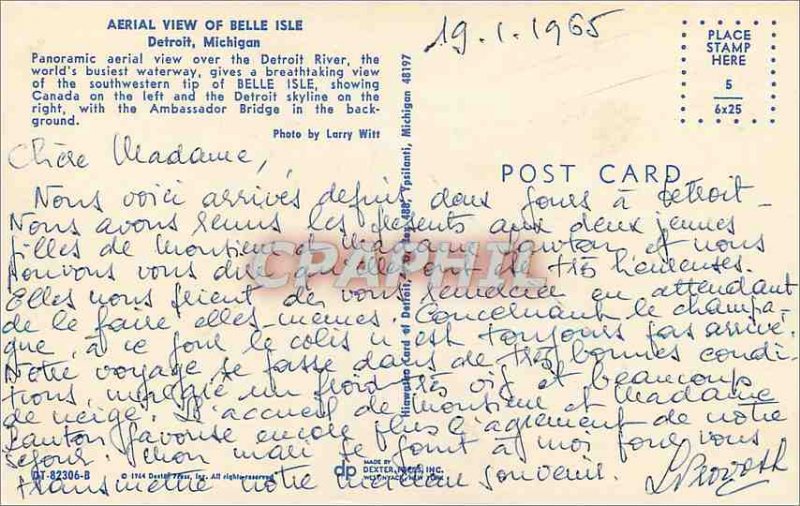 AERIAL VIEW OF BELLE ISLE
Detroit, Michigan
Panoramic aerial view over the Detroit River, the
world's busiest waterway, gives a breathtaking view
of the southwestern tip of BELLE ISLE, showing
Canada on the left and the Detroit skyline on the
right, with the Ambassador Bridge in the back-
ground.
Photo by Larry Witt
19.1.1965
PLACE
STAMP
HERE
5
6x25
POST CARD
Chère Madame,
Nous voici arrivés depuis deux jours à Détroit -
Nous avons remis les présents aux deux jeunes
filles de Monsieur et Madame et nous
pouvons vous dire qu'elles ont été très heureuses.
Elles nous prient de vous remercier en attendant
de le faire elles-mêmes. Concernant le champa-
gne, à ce jour le colis n'est toujours pas arrivé.
Notre voyage se passe dans de très bonnes condi-
tions, malgré un froid très vif et beaucoup
de neige. L'accueil de Monsieur et Madame
favorise encore plus l'agrément de notre
séjour. Mon mari se joint à moi pour vous
transmettre notre meilleur souvenir.
Hiawatha Card of Detroit, Box 488, Ypsilanti, Michigan 48197
DT-82306-B
© 1964 Dexter Press, Inc. All rights reserved
dp
MADE BY
DEXTER PRESS, INC.
WEST NYACK, NEW YORK
CPAPHIL